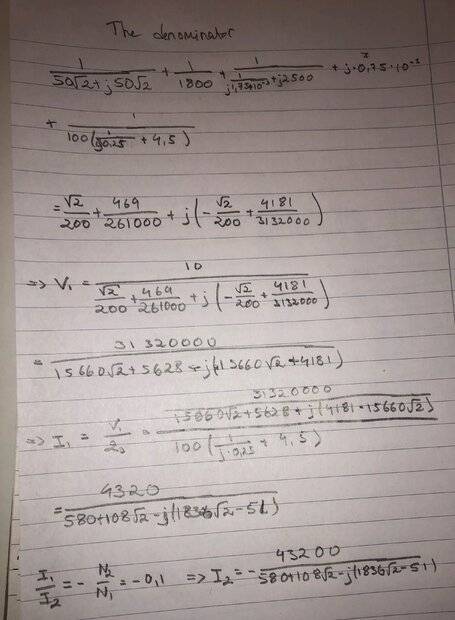 The denominator
1/(50√2+j50√2) + 1/1800 + 1/(1/(j1,75·10⁻³)+j2500) + j·0,75·10⁻³
+ 1/(100(1/(j0,25) + 4,5))
= √2/200 + 469/261000 + j(-√2/200 + 4181/3132000)
=> V₁ = 10/(√2/200 + 469/261000 + j(-√2/200 + 4181/3132000))
= 31320000/(15660√2+5628+j(-15660√2+4181))
=> I₁ = V₁/Z₃ = (31320000/(15660√2+5628+j(4181-15660√2)))/(100(1/(j·0,25) + 4,5))
= 4320/(580+108√2-j(1836√2-51))
I₁/I₂ = -N₂/N₁ = -0,1 => I₂ = -43200/(580+108√2-j(1836√2-51))